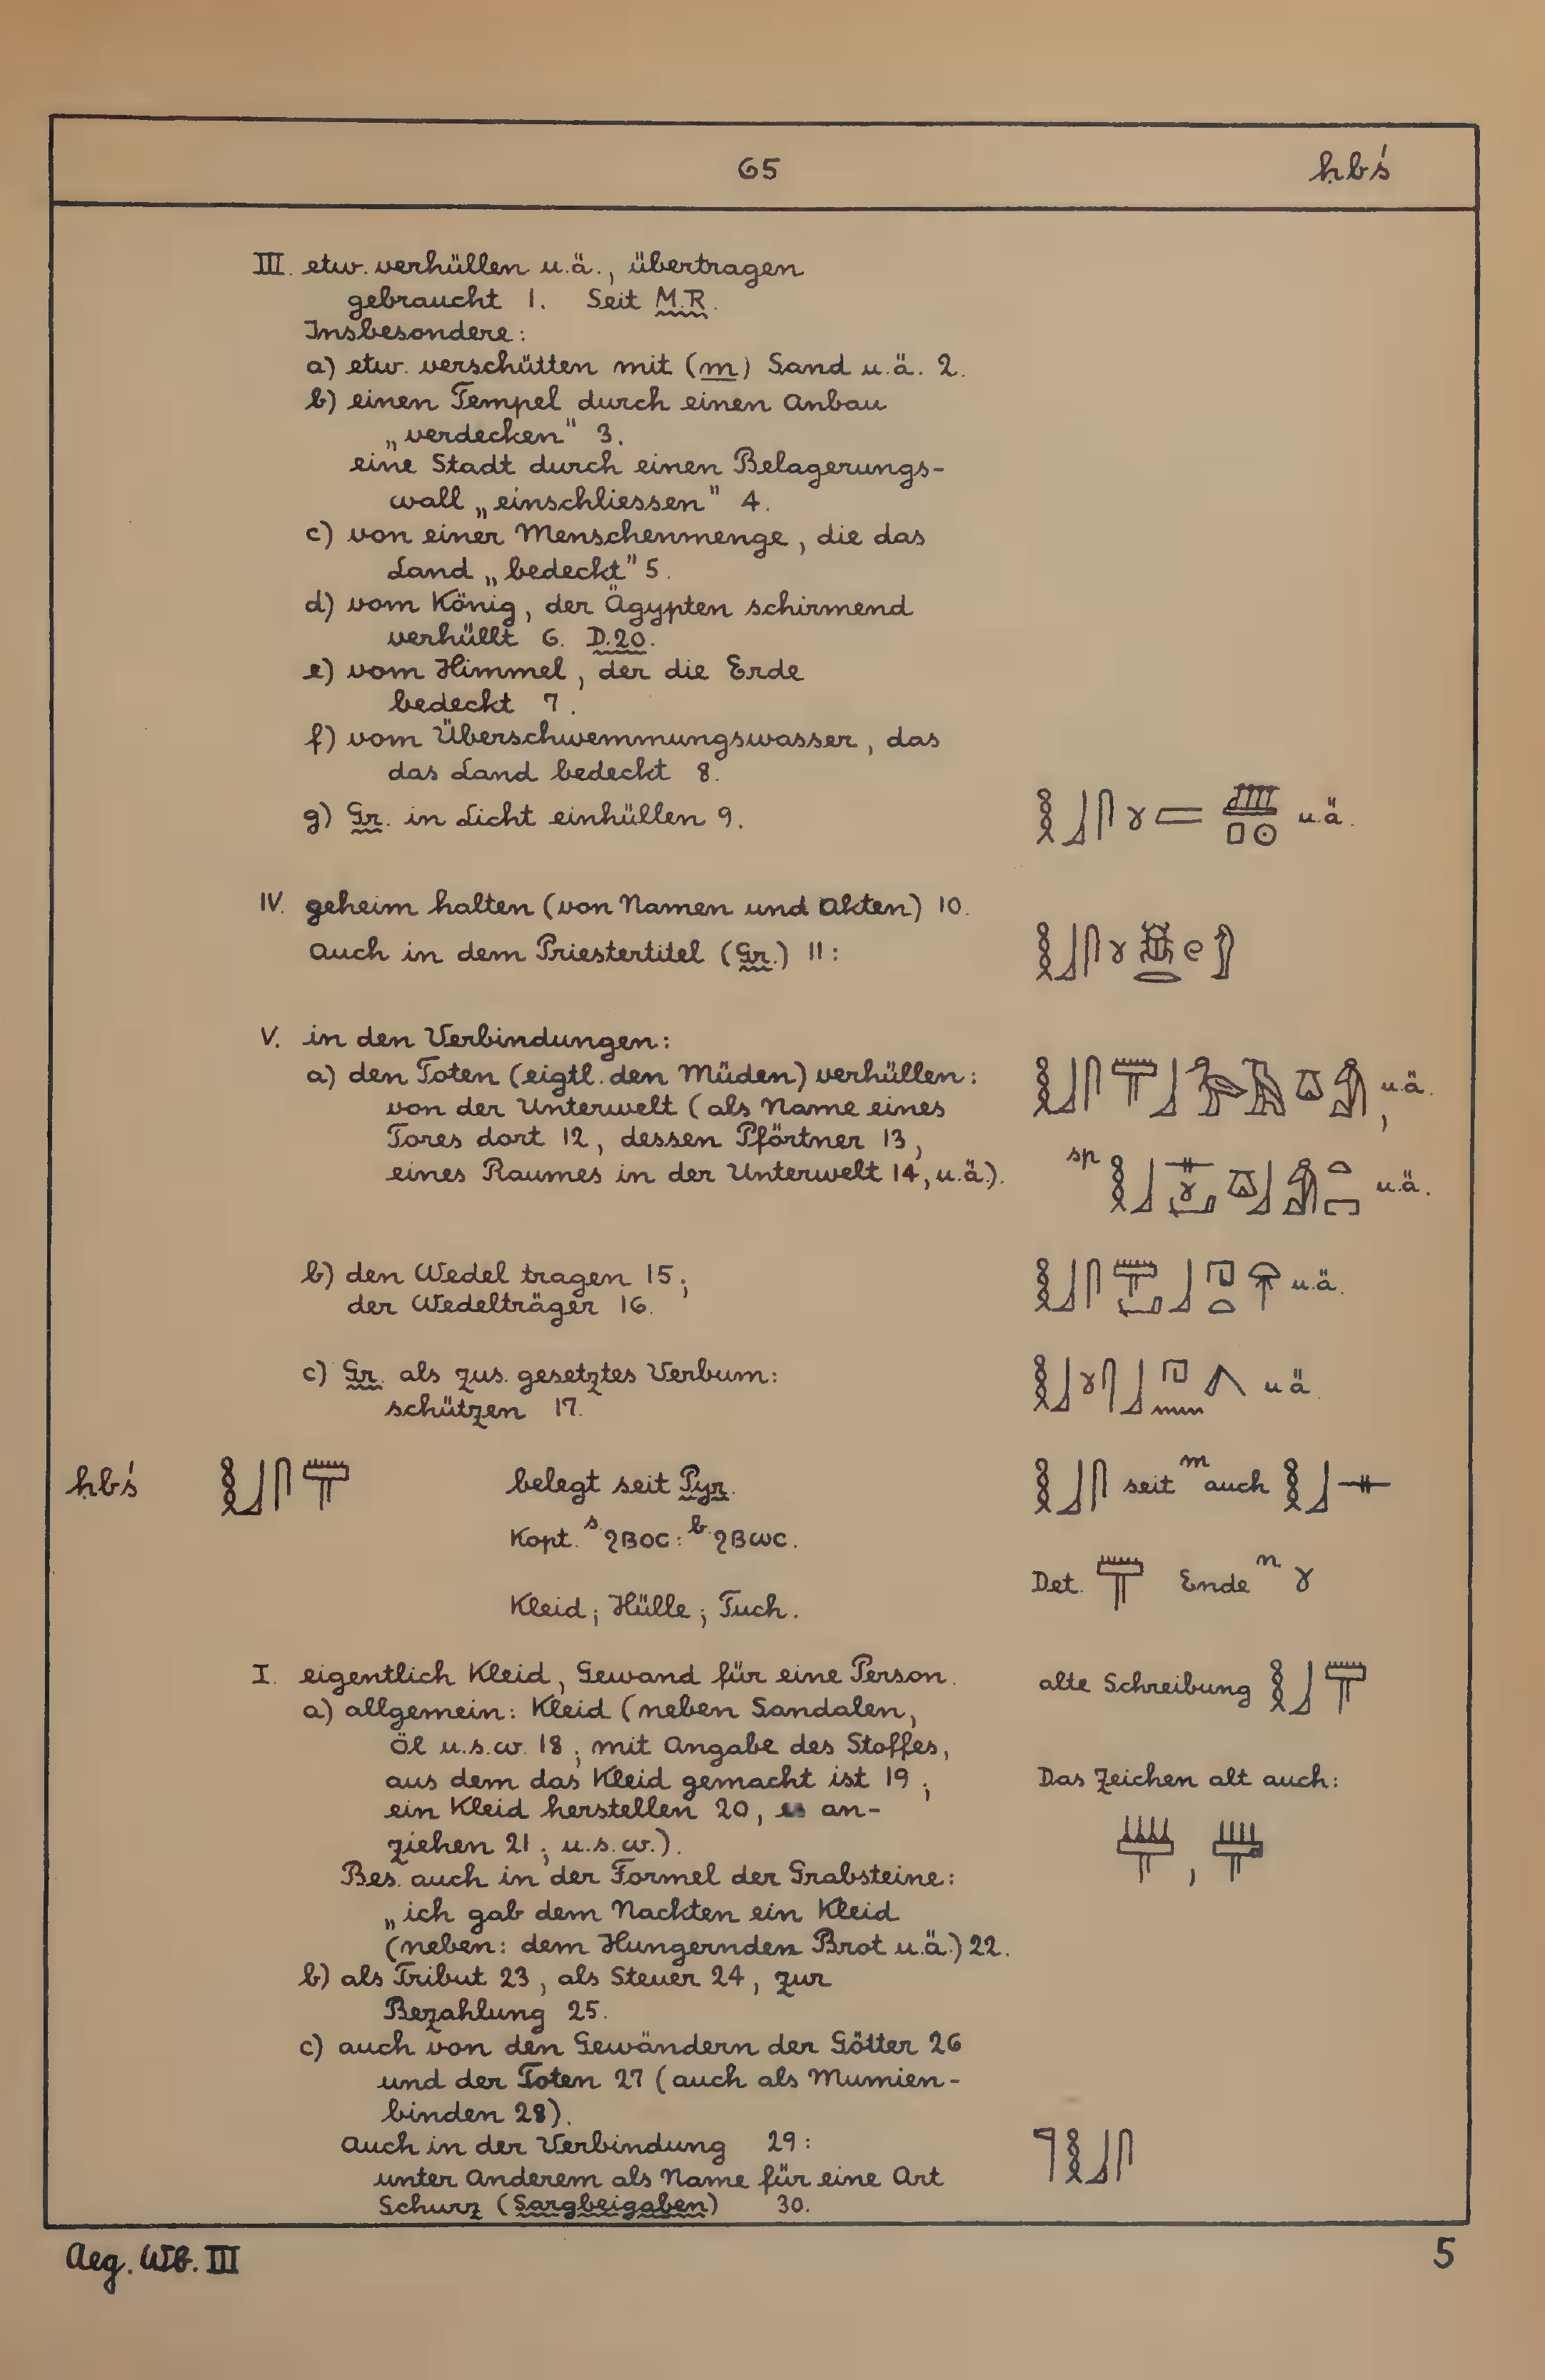 65 ḥbś
III. etw. verhüllen u.ä., übertragen
gebraucht 1. Seit M.R.
Insbesondere:
a) etw. verschütten mit (m) Sand u.ä. 2.
b) einen Tempel durch einen Anbau
„verdecken" 3.
eine Stadt durch einen Belagerungs-
wall „einschliessen" 4.
c) von einer Menschenmenge, die das
Land „bedeckt" 5.
d) vom König, der Ägypten schirmend
verhüllt 6. D.20.
e) vom Himmel, der die Erde
bedeckt 7.
f) vom Überschwemmungswasser, das
das Land bedeckt 8.
g) Gr. in Licht einhüllen 9. u.ä.
IV. geheim halten (von Namen und Akten) 10.
Auch in dem Priestertitel (Gr.) 11:
V. in den Verbindungen:
a) den Toten (eigtl. den Müden) verhüllen: u.ä.,
von der Unterwelt (als Name eines
Tores dort 12, dessen Pförtner 13,
eines Raumes in der Unterwelt 14, u.ä.). sp u.ä.
b) den Wedel tragen 15; u.ä.
der Wedelträger 16.
c) Gr. als zus. gesetztes Verbum: u.ä.
schützen 17.
ḥbś 𓎛𓃀𓋴𓋳 belegt seit Pyr. 𓎛𓃀𓋴 seit m auch 𓎛𓃀𓊃
Kopt. s. ϩⲃⲟⲥ: b. ϩⲃⲱⲥ.
Det. 𓋳 Ende n 𓍢
Kleid; Hülle; Tuch.
I. eigentlich Kleid, Gewand für eine Person. alte Schreibung 𓎛𓃀𓋳
a) allgemein: Kleid (neben Sandalen,
Öl u.s.w. 18; mit Angabe des Stoffes,
aus dem das Kleid gemacht ist 19; Das Zeichen alt auch:
ein Kleid herstellen 20, es an-
ziehen 21; u.s.w.).
Bes. auch in der Formel der Grabsteine:
„ich gab dem Nackten ein Kleid
(neben: dem Hungernden Brot u.ä.) 22.
b) als Tribut 23, als Steuer 24, zur
Bezahlung 25.
c) auch von den Gewändern der Götter 26
und der Toten 27 (auch als Mumien-
binden 28).
Auch in der Verbindung 29: 𓊹𓎛𓃀𓋴
unter Anderem als Name für eine Art
Schurz (Sargbeigaben) 30.
Aeg. Wb. III 5